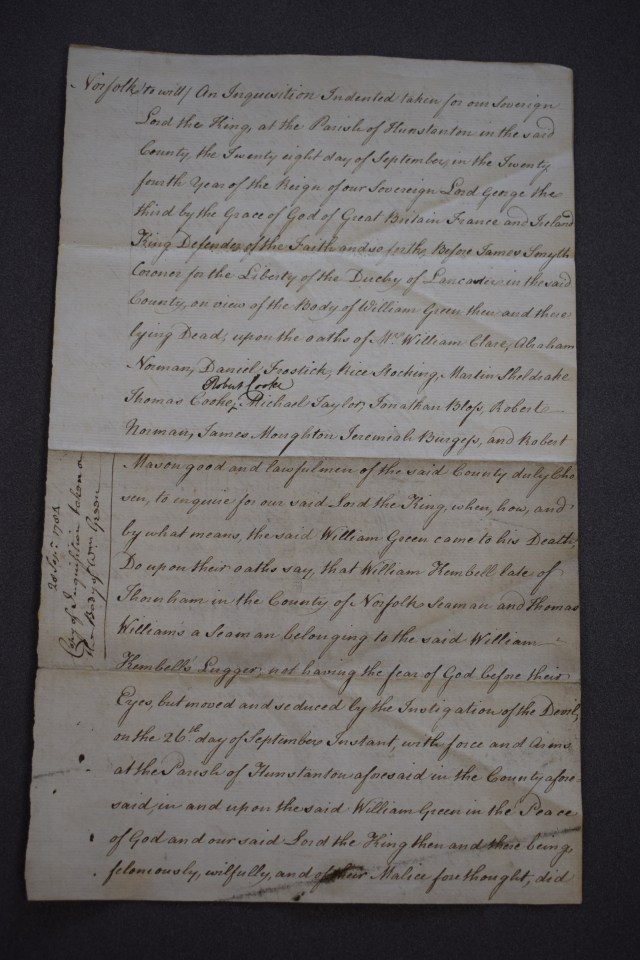 Norfolk to will/ An Inquisition Indented taken for our Soverign
Lord the King, at the Parish of Hunstanton in the said
County, the Twenty eight day of September, in the Twenty
fourth Year of the Reign of our Sovereign Lord George the
third by the Grace of God of Great Britain France and Ireland
King Defender of the Faith and so forth, Before James Smyth
Coroner for the Liberty of the Duchy of Lancaster in the said
County, on view of the Body of William Green then and there
lying Dead, upon the oaths of Mr. William Clare, Abraham
Norman, Daniel Frostick, Rice Stocking, Martin Sheldrake
Robert Cooke
Thomas Cooke, Michael Taylor, Jonathan Bloss, Robert
Norman, James Moughton Jeremiah Burgess, and Robert
Mason good and lawful men of the said County duly Cho
sen, to inquire for our said Lord the King, when, how, and
by what means, the said William Green came to his Death,
Do upon their oaths say, that William Kembell late of
Thornham in the County of Norfolk Seaman and Thomas
Williams a Seaman belonging to the said William
Kembell's Lugger, not having the fear of God before their
Eyes, but moved and seduced by the Instigation of the Devil,
on the 26th day of September Instant, with force and Arms
at the Parish of Hunstanton aforesaid in the County afore-
said, in and upon the said William Green in the Peace
of God and our said Lord the King then and there being,
feloneously, wilfully, and of their Malice forethought, did
Sepr. 1784
Copy of Inquisition taken on
the Body of Wm. Green